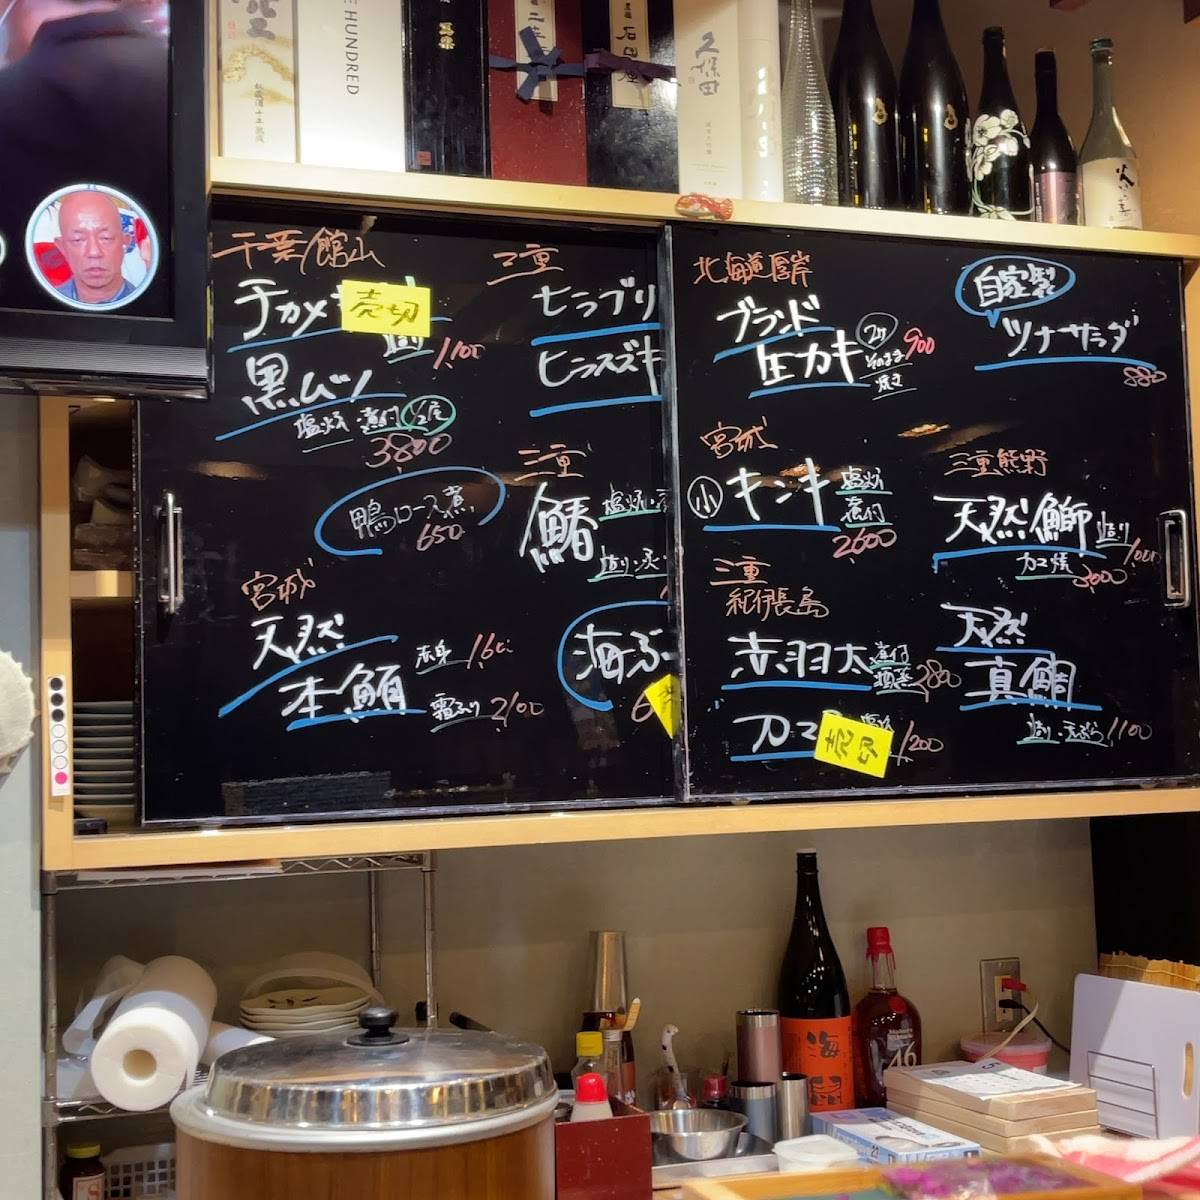 HUNDRED
久保田
千葉/館山
チカメ
売切
造り 1,100
黒ムツ
塩焼・煮付
3800
鴨ロース煮
650
宮城
天然
本鮪
赤身
霜ふり 2,100
三重
ヒラブリ
ヒラスズキ
三重
鰆
塩焼・
造り・炙
海ぶ
北海道厚岸
ブランド
生カキ
2ケ
そのまま
焼き
900
自家製
ツナサラダ
880
宮城
小
キンキ
塩焼
煮付
2600
三重熊野
天然鰤 造り 1,000
カマ焼
三重
紀伊長島
赤羽太
煮付
酒蒸 2,800
カマ
売切
1,200
天然
真鯛
造り・天ぷら 1,100
海
46